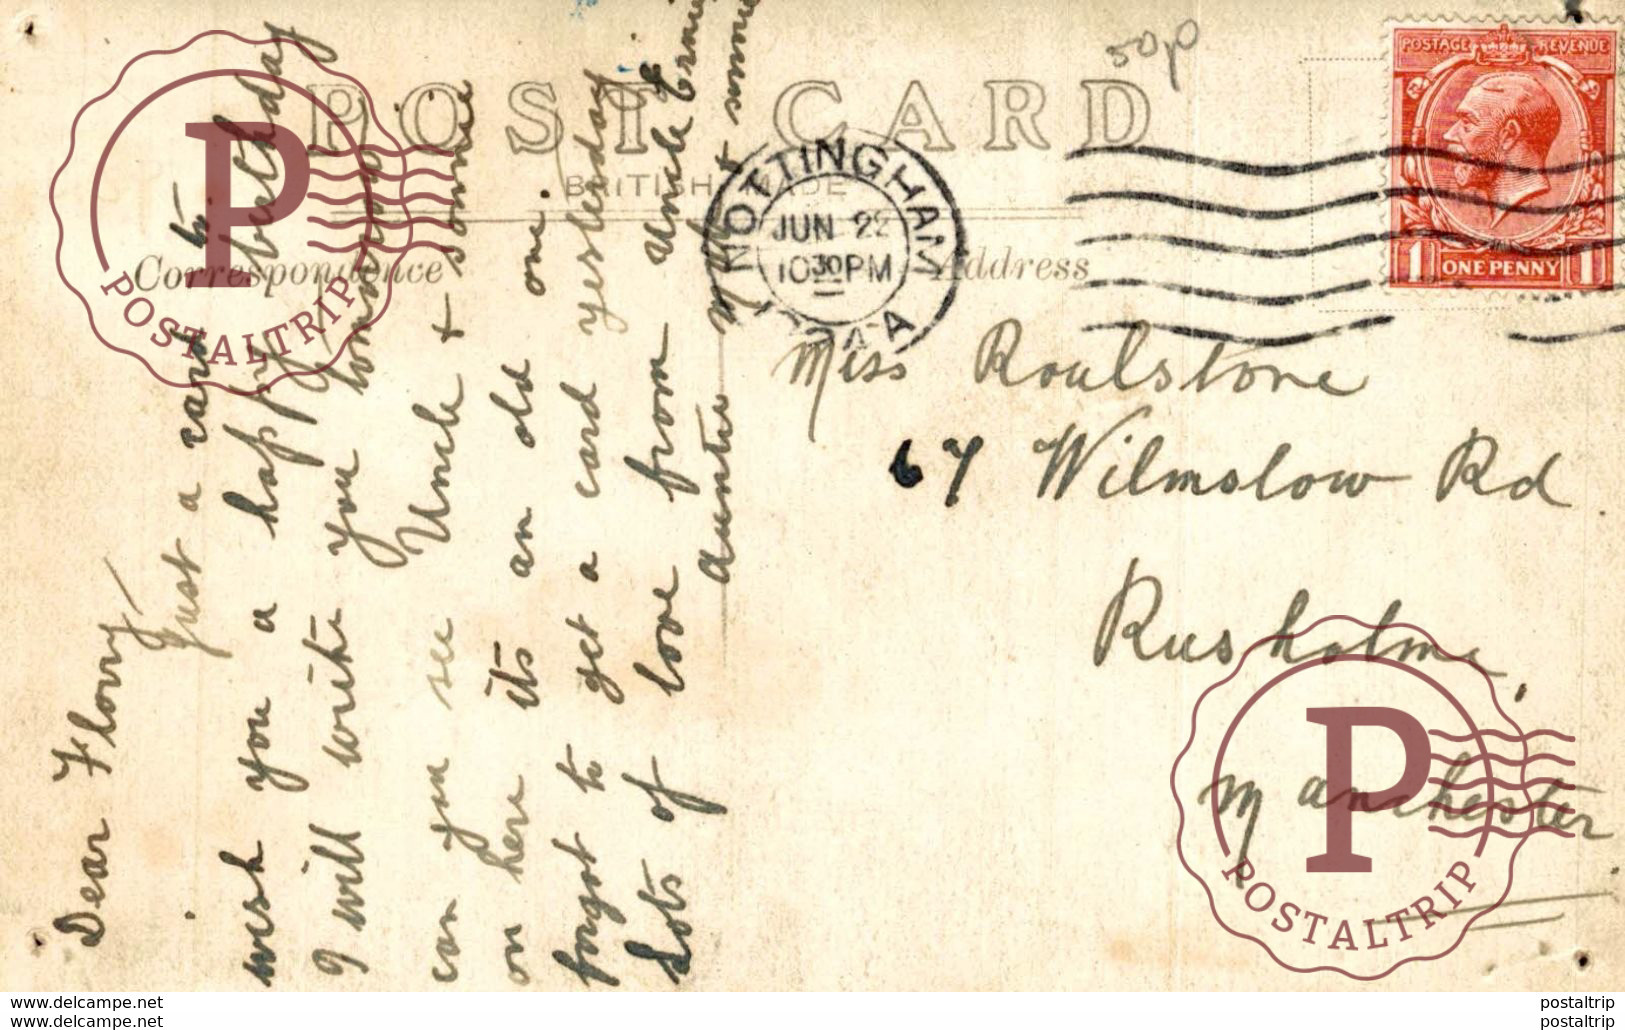 POST CARD
BRITISH MADE
Correspondence
Address
50p
POSTAGE REVENUE
1 ONE PENNY 1
NOTTINGHAM
JUN 22
10 30 PM
Dear Florry
Just a card to
wish you a happy birthday
I will write you
can you see Uncle & some
on here its an old one.
forgot to get a card yesterday
Lots of love from Uncle Ernie
Auntie &
Miss Roulstone
67 Wilmslow Rd
Rusholme,
Manchester
P
POSTALTRIP
P
POSTALTRIP
www.delcampe.net
postaltrip
www.delcampe.net
postaltrip